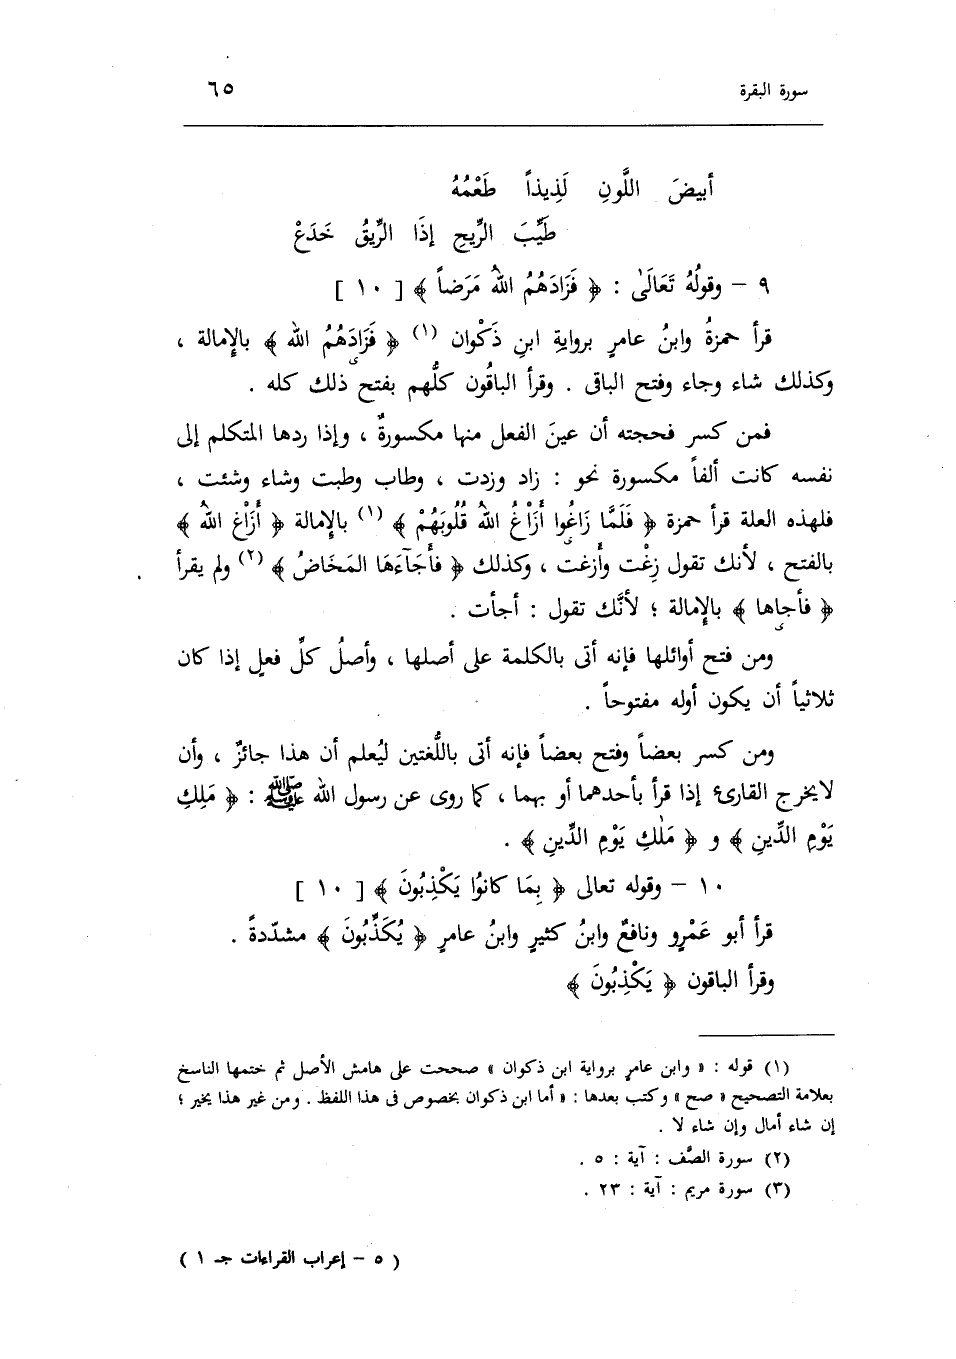 سورة البقرة ٦٥
أبيضَ اللَّونِ لَذِيذاً طَعْمُهُ
طَيِّبَ الرِّيحِ إذَا الرِّيقُ خَدَعْ
٩ – وقولُهُ تَعَالَىٰ : ﴿ فَزَادَهُمُ اللهُ مَرَضاً ﴾ [ ١٠ ]
قرأ حمزةُ وابنُ عامرٍ بروايةِ ابنِ ذَكْوان (١) ﴿ فَزَادَهُمُ الله ﴾ بالإمالة ،
وكذلك شاء وجاء وفتح الباقى . وقرأ الباقُون كلُّهم بفتح ذلك كله .
فمن كسر فحجته أن عينَ الفعل منها مكسورةٌ ، وإذا ردها المتكلم إلى
نفسه كانت ألفاً مكسورة نحو : زاد وزدت ، وطاب وطبت وشاء وشئت ،
فلهذه العلة قرأ حمزة ﴿ فَلَمَّا زَاغُوا أَزَاْغُ اللهُ قُلُوبَهُمْ ﴾ (١) بالإمالة ﴿ أَزَاْغ اللهُ ﴾
بالفتح ، لأنك تقول زِغْت وأَزغت ، وكذلك ﴿ فأَجَآءَهَا المَخَاضُ ﴾ (٢) ولم يقرأ
﴿ فأجاها ﴾ بالإمالة ؛ لأنَّك تقول : أجأت .
ومن فتح أوائلها فإنه أتى بالكلمة على أصلها ، وأصلُ كلِّ فعلٍ إذا كان
ثلاثياً أن يكون أوله مفتوحاً .
ومن كسر بعضاً وفتح بعضاً فإنه أتى باللُّغتين ليُعلم أن هذا جائزٌ ، وأن
لايخرج القارئ إذا قرأ بأحدهما أو بهما ، كما روى عن رسول الله ﷺ : ﴿ مَلِكِ
يَوْمِ الدِّينِ ﴾ و ﴿ مَٰلكِ يَوْمِ الدِّينِ ﴾ .
١٠ – وقوله تعالى ﴿ بِمَا كانُوا يَكْذِبُونَ ﴾ [ ١٠ ]
قرأ أبو عَمْرٍو ونافعٌ وابنُ كثيرٍ وابنُ عامرٍ ﴿ يُكَذِّبُونَ ﴾ مشدّدةً .
وقرأ الباقون ﴿ يَكْذِبُونَ ﴾
(١) قوله : « وابن عامر برواية ابن ذكوان » صححت على هامش الأصل ثم ختمها الناسخ
بعلامة التصحيح « صح » وكتب بعدها : « أما ابن ذكوان بخصوص فى هذا اللفظ . ومن غير هذا يخير ؛
إن شاء أمال وإن شاء لا .
(٢) سورة الصَّف : آية : ٥ .
(٣) سورة مريم : آية : ٢٣ .
( ٥ – إعراب القراءات جـ ١ )